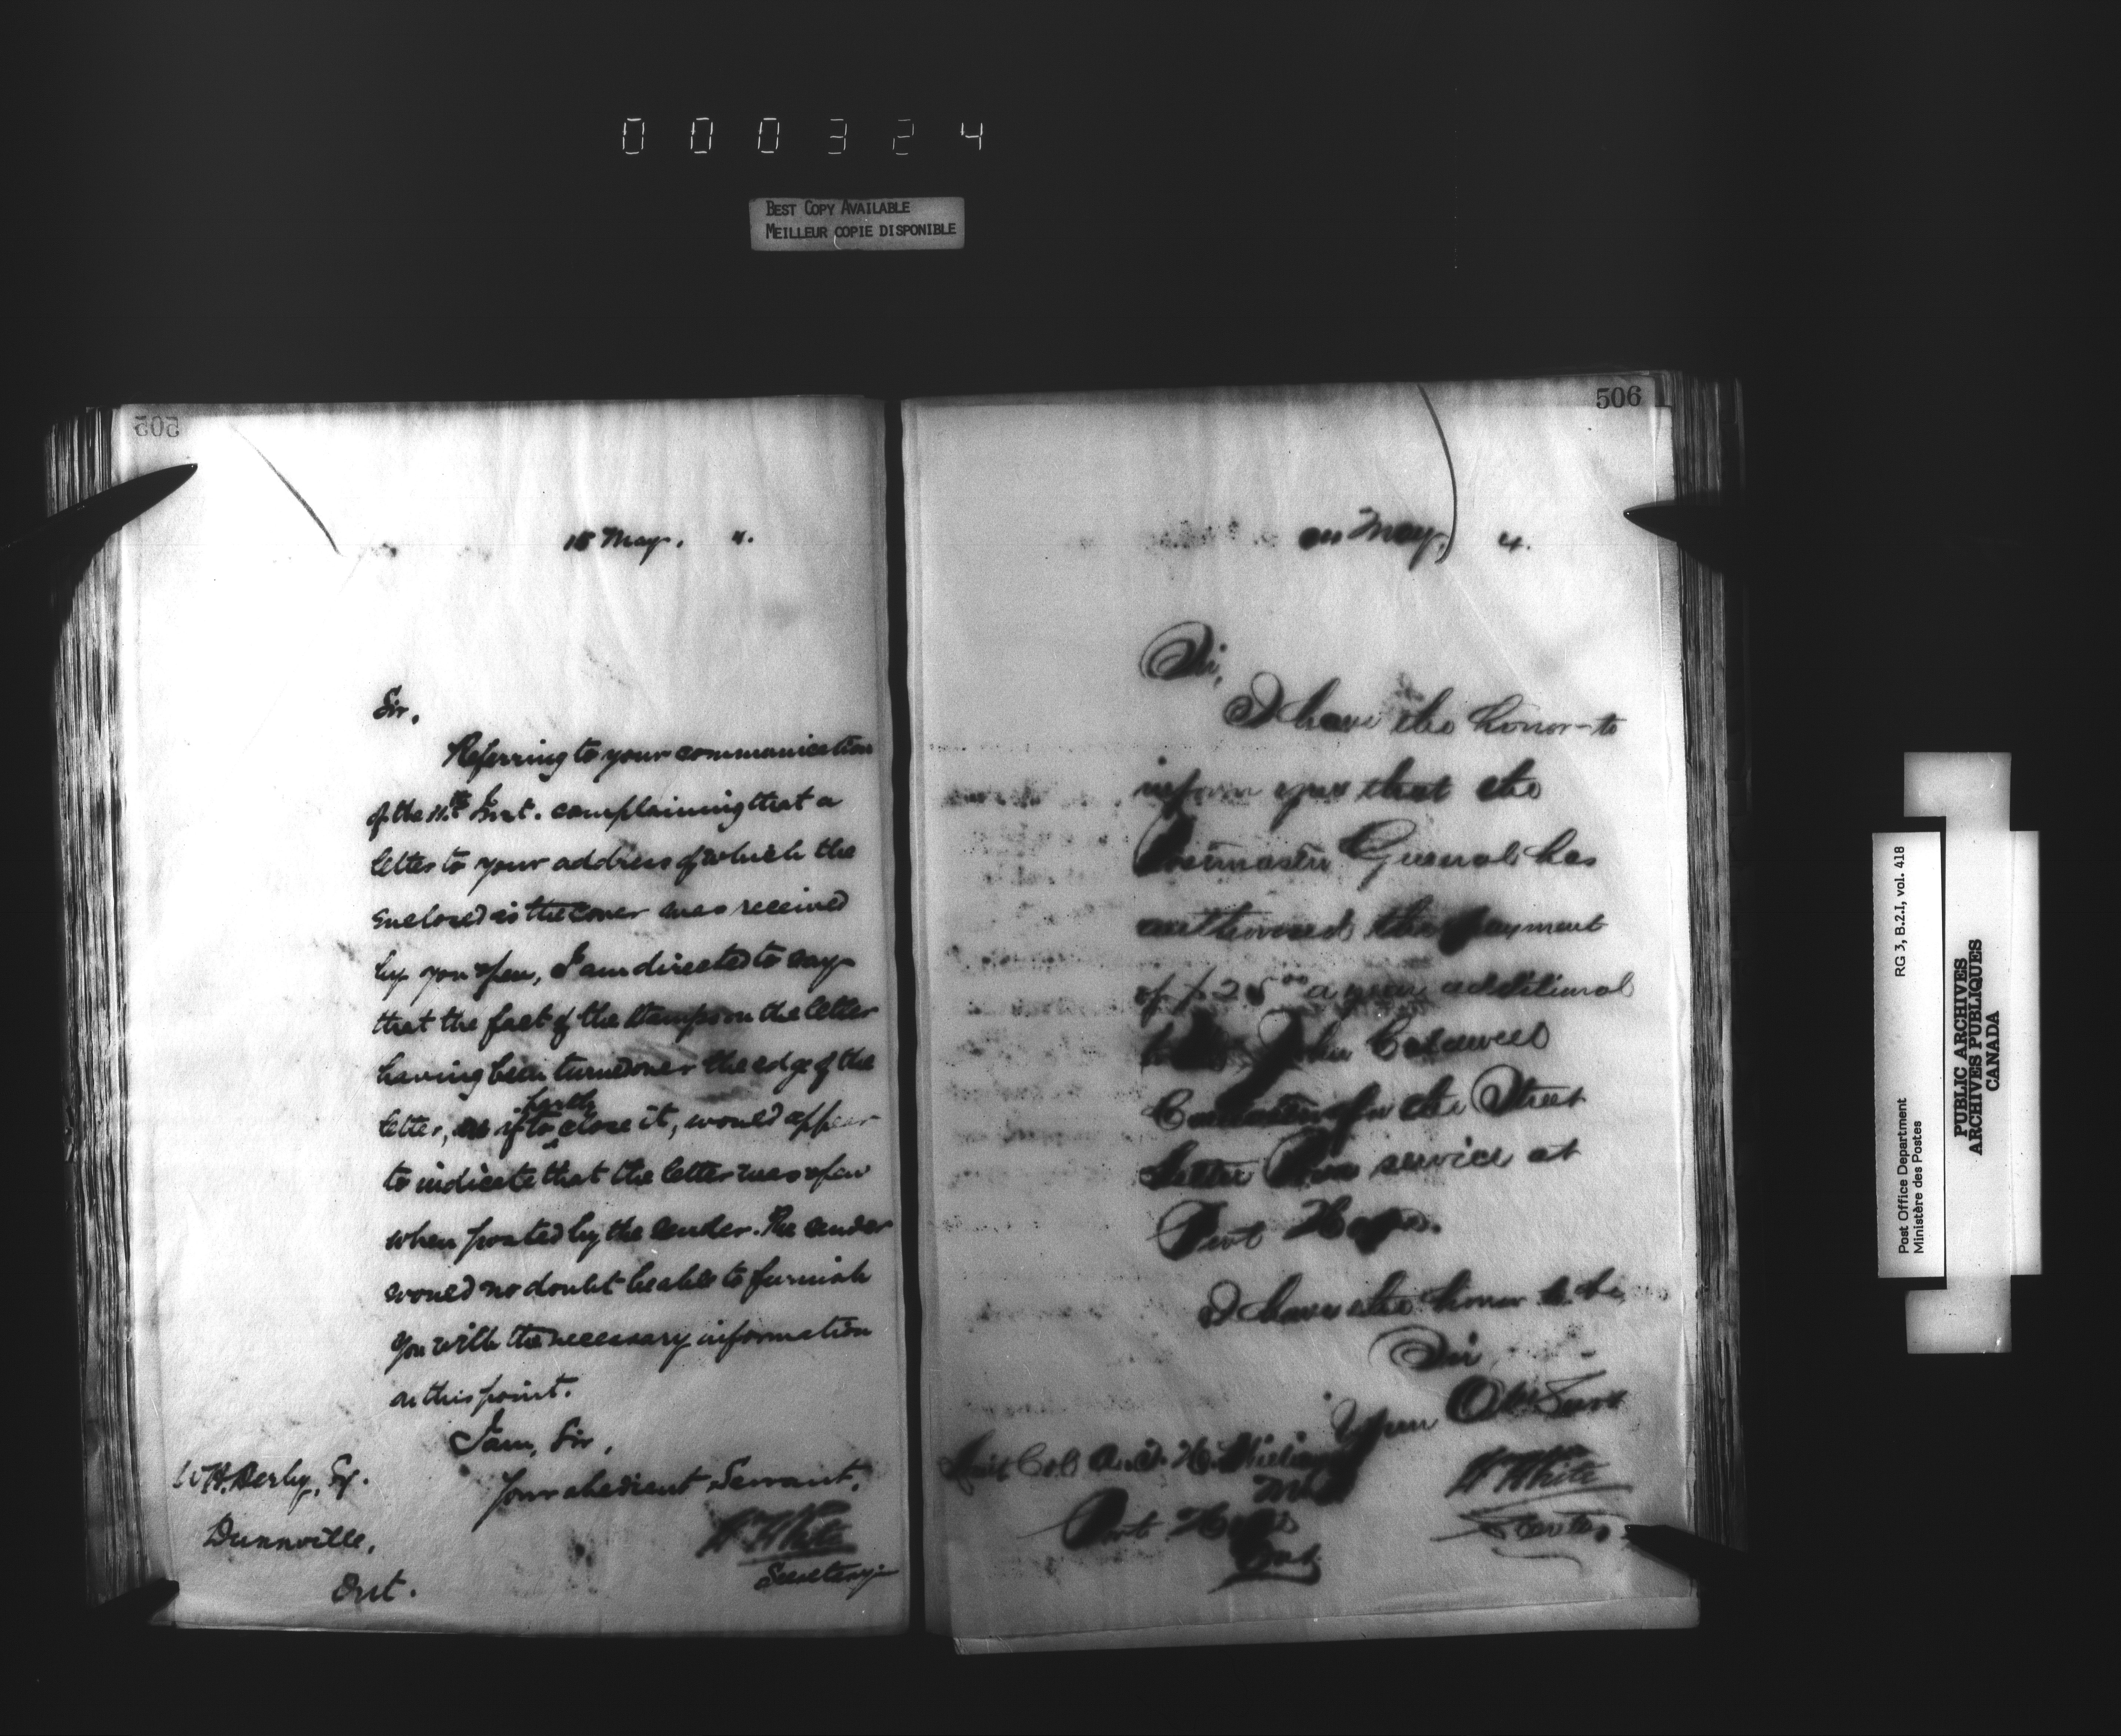 000324
BEST COPY AVAILABLE
MEILLEUR COPIE DISPONIBLE
505
15 May, 4.
Sir,
Referring to your communication
of the 11th Inst. complaining that a
letter to your address of which the
enclosed is the cover was received
by you open, I am directed to say
that the fact of the stamps on the letter
having been turned over the edge of the
letter, as if to close it, would appear
to indicate that the letter was open
when posted by the sender. The sender
would no doubt be able to furnish
you with the necessary information
on this point.
I am, Sir,
Your obedient Servant,
W H White
Secretary
W.H. Derby, Esq.
Dunnville,
Ont.
506
May, 4.
Sir,
I have the honor to
inform you that the
Postmaster General has
authorized the payment
of $25.00 a year additional
to John Caldwell
Contractor for the Street
Letter Box service at
Port Hope.
I have the honor to be,
Sir
Your Obt Servt
W H White
Secretary
Lieut Col A. T. H. Williams
M.P.
Port Hope
Ont
Post Office Department RG 3, B.2.I, vol. 418
Ministère des Postes
PUBLIC ARCHIVES
ARCHIVES PUBLIQUES
CANADA